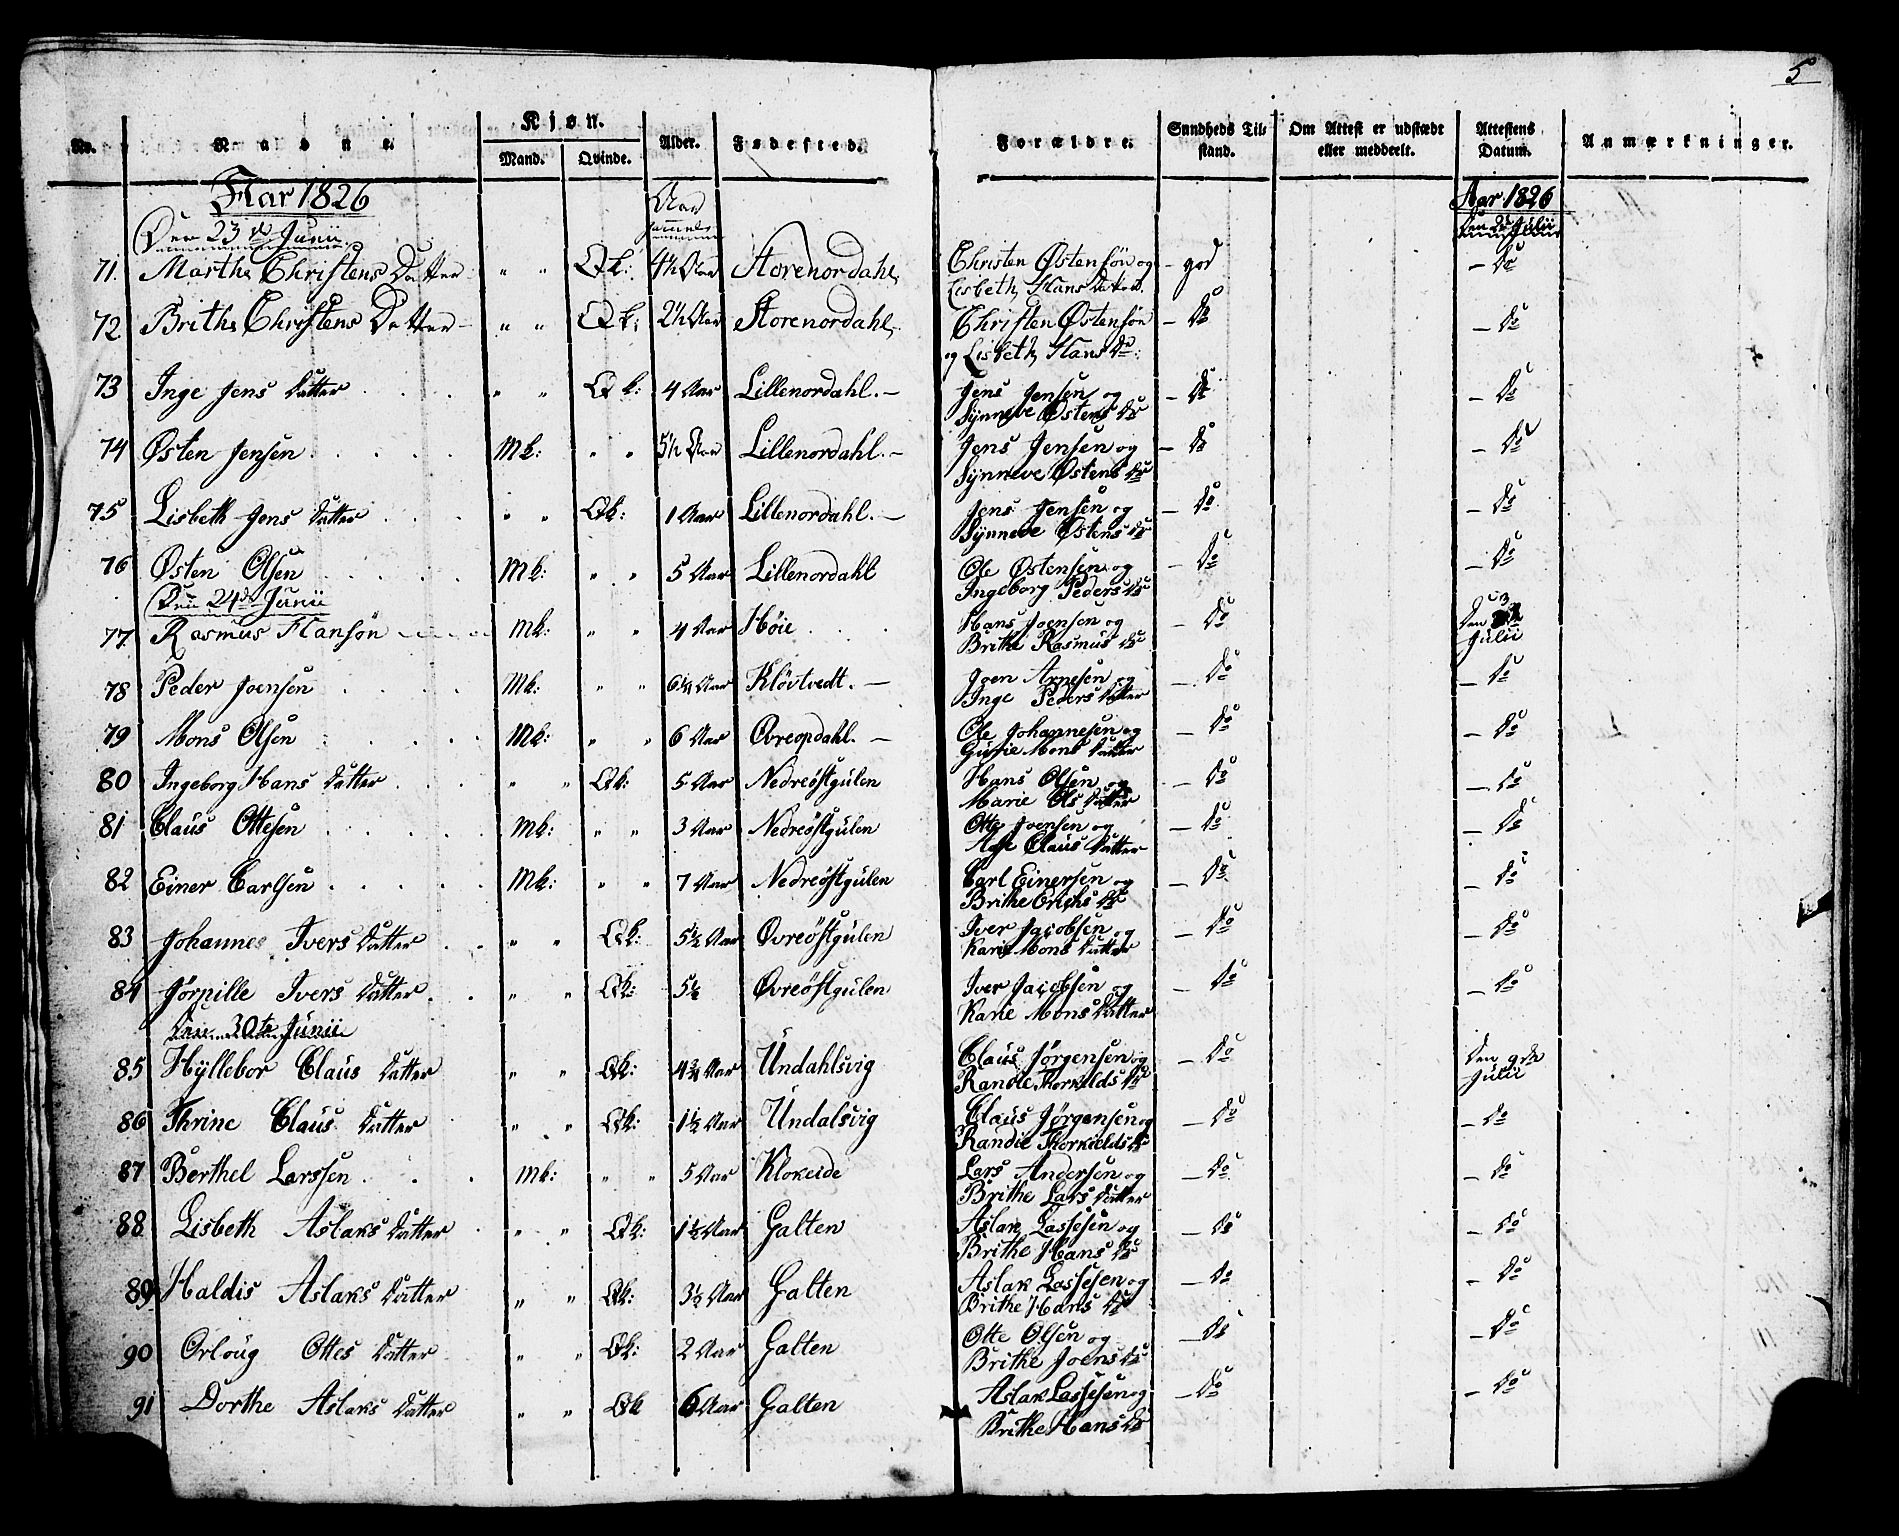 5
No. Navne. Kjøn. Mand. Qvinde. Alder. Fødested. Forældre. Sundheds Tilstand. Om Attest er udstædt eller meddeelt. Attestens Datum. Anmærkninger.
Aar 1826 Aar Aar 1826
Den 23de Junii Julii
71. Marthe Christens Datter " " Qk: 4½ Aar Storenordahl, Christen Østensön og - god - Do
Lisbeth Hans Datter.
72. Brithe Christens Datter " " Qk: 2½ Aar Storenordahl, Christen Østensön - Do - Do
og Lisbeth Hans Dr:
73 Inge Jens Datter " " Qk: 4 Aar Lillenordahl. - Jens Jensen og - Do - Do
Synneve Østens Dr
74 Østen Jensen Mk: " " 5½ Aar Lillenordahl. - Jens Jensen og - Do - Do
Synneve Østens Dr
75 Lisbeth Jens Datter " " Qk: 1 Aar Lillenordahl. - Jens Jensen og - Do - Do
Synneve Østens Dr
76 Østen Olsen Mk: " " 5 Aar Lillenordahl Ole Østensen og - Do - Do
Ingeborg Peders Dr
Den 24de Junii
77. Rasmus Hansön Mk: " " 4 Aar Höie Hans Joensen og - Do Den
Brithe Rasmus Dr Julii
78 Peder Joensen Mk: " " 6¼ Aar Klövtvedt. - Joen Arnesen og - Do - Do
Inge Peders Datter
79 Mons Olsen Mk: " " 6 Aar Ovreopdahl. - Ole Johannesen og - Do - Do
Gurie Mons Datter
80 Ingeborg Hans Datter " " Qk: 5 Aar Nedreöstgülen Hans Olsen og - Do - Do
Marie Ols Datter
81 Claus Ottesen Mk: " " 3 Aar Nedreöstgülen Otte Joensen og - Do - Do
Claus Datter
82 Einer Carlsen Mk: " " 7 Aar Nedreöstgülen Carl Einersen og - Do - Do
Brithe Erichs Dr
83 Johannes Ivers Datter " " Qk: 5½ Aar Ovreöstgülen Iver Jacobsen og - Do - Do
Karie Mons Datter
84 Jörpille Ivers Datter " " Qk: 5½ Ovreöstgülen Iver Jacobsen og - Do - Do
Karie Mons Datter
Den 30te Junii
85 Hyllebor Claus Datter " " Qk: 4¾ Aar Undahlsvig Claus Jörgensen og - Do Den 9de
Randie Thorkilds Dr Julii
86 Thrine Claus Datter " " Qk: 1½ Aar Undalsvig Claus Jörgensen og - Do - Do
Randie Thorkields Dr
87 Berthel Larssen Mk: " " 5 Aar Klokeide Lars Andersen og - Do - Do
Brithe Lars Datter
88 Lisbeth Aslaks Datter " " Qk: 1½ Aar Galten Aslak Lassesen og - Do - Do
Brithe Hans Dr
89 Haldis Aslaks Datter " " Qk: 3½ Aar Galten Aslak Lassesen og - Do - Do
Brithe Hans Dr
90 Orloug Ottes Datter " " Qk: 2 Aar Galten Otte Olsen og - Do - Do
Brithe Joens Dr
91 Dorthe Aslaks Datter " " Qk 6 Aar Galten Aslak Lassesen og - Do - Do
Brithe Hans Dr